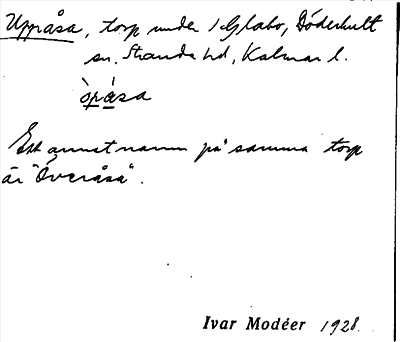 Uppråsa, torp under 1 Glabo, Döderhult
sn. Stranda hd, Kalmar l.
òpása
Ett annat namn på samma torp
är "Överåsa".
Ivar Modéer 1928.